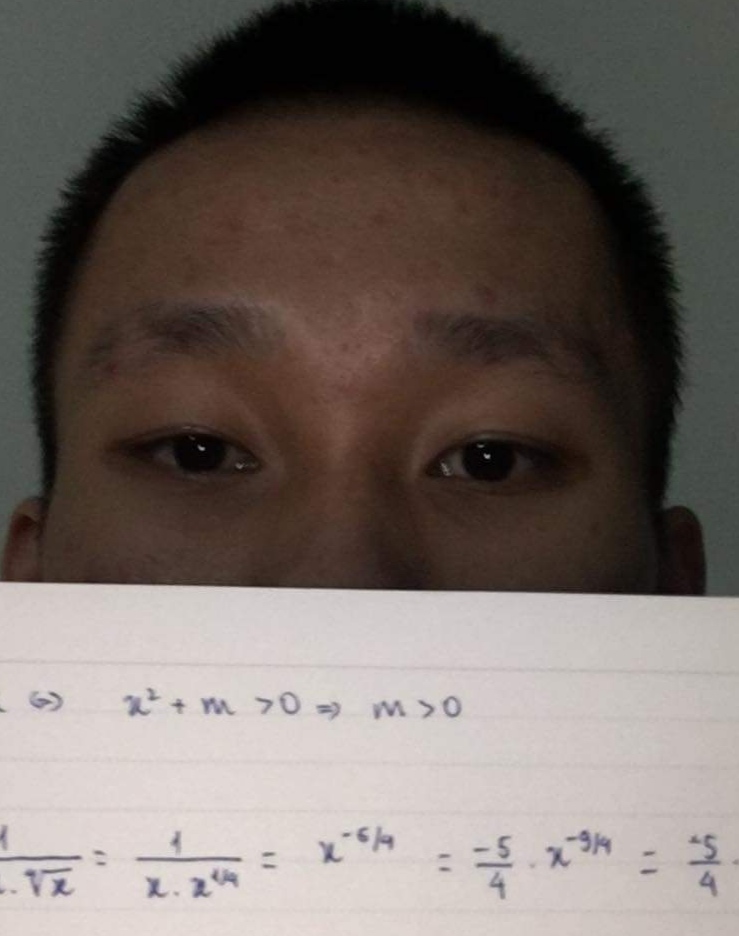 ⇔ x² + m > 0 ⇒ m > 0
1/(x.⁴√x) = 1/(x.x^{1/4}) = x^{-5/4} = -5/4 . x^{-9/4} = -5/4 .